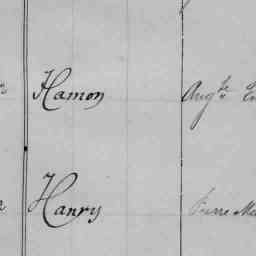 Hamon Aug.te
Hanry Pierre